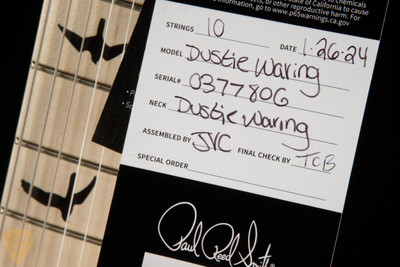 State of California to cause
or other reproductive harm. For
go to www.p65warnings.ca.gov
STRINGS 10 DATE 1·26·24
MODEL Dustie Waring
SERIAL# 0377806
NECK Dustie Waring
ASSEMBLED BY JVC FINAL CHECK BY TCB
SPECIAL ORDER
Paul Reed Smith®